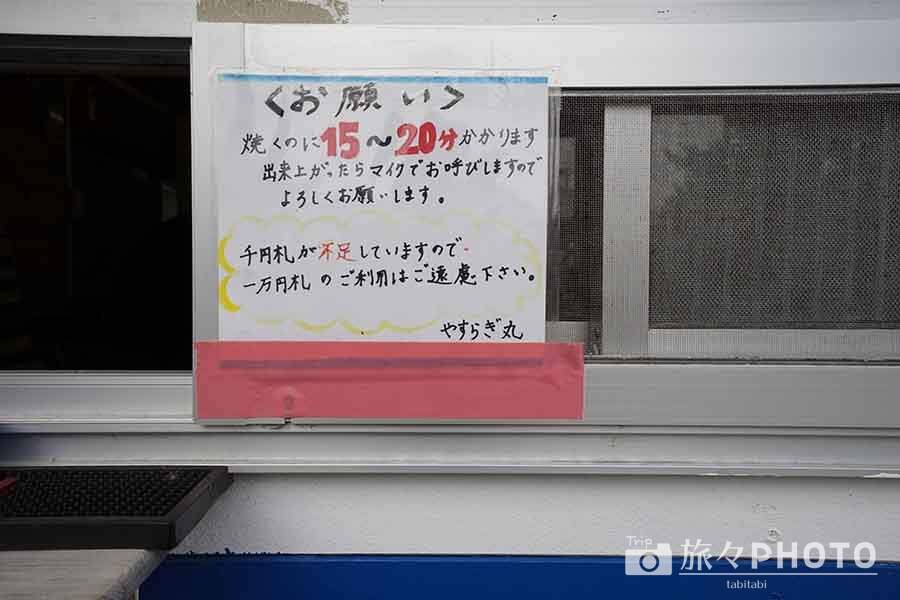 <お願い>
焼くのに15～20分かかります
出来上がったらマイクでお呼びしますので
よろしくお願いします。
千円札が不足していますので
一万円札のご利用はご遠慮下さい。
やすらぎ丸
Trip
旅々PHOTO
tabitabi